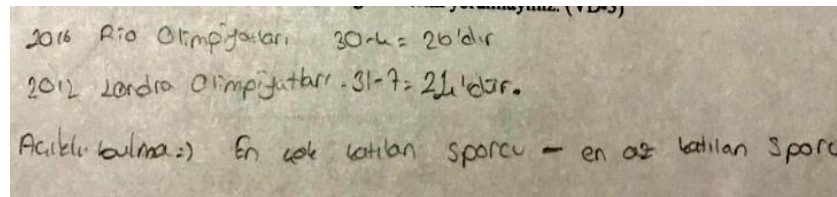 yorumlayınız. (VD-3)
2016 Rio Olimpiyatları 30-4= 26'dır
2012 Londra Olimpiyatları. 31-7= 24'dür.
Açıklı bulma=) En çok katılan sporcu - en az katılan sporc